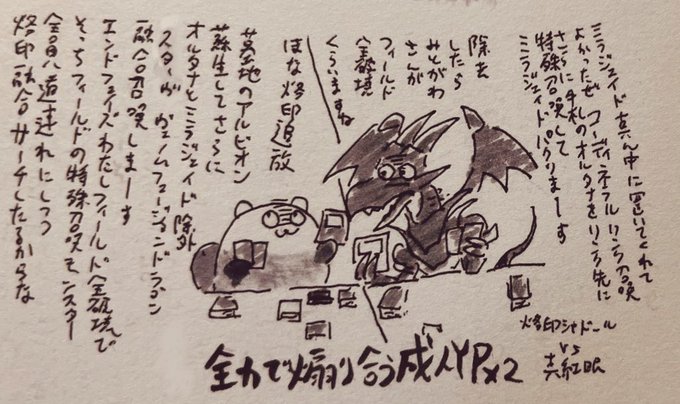 ミラジェイド真ん中に置いてくれて
よかったぜ コーディネラル リンク召喚
さらに手札のオルタナをリンク先に
特殊召喚して
ミラジェイドパクりまーす
除去
したら
みとがわ
さんが
フィールド
全破壊
くらいますね
はな烙印追放
墓地のアルビオン
蘇生してさらに
オルタナとミラジェイド除外
スターヴヴェノムフュージョンドラゴン
融合召喚しまーす
エンドフェイズわたしフィールド全破壊で
そっちフィールドの特殊召喚モンスター
全員道連れにしつつ
烙印融合サーチしたるからな
烙印シャドール
VS
真紅眼
全力で煽り合う成人YPx2